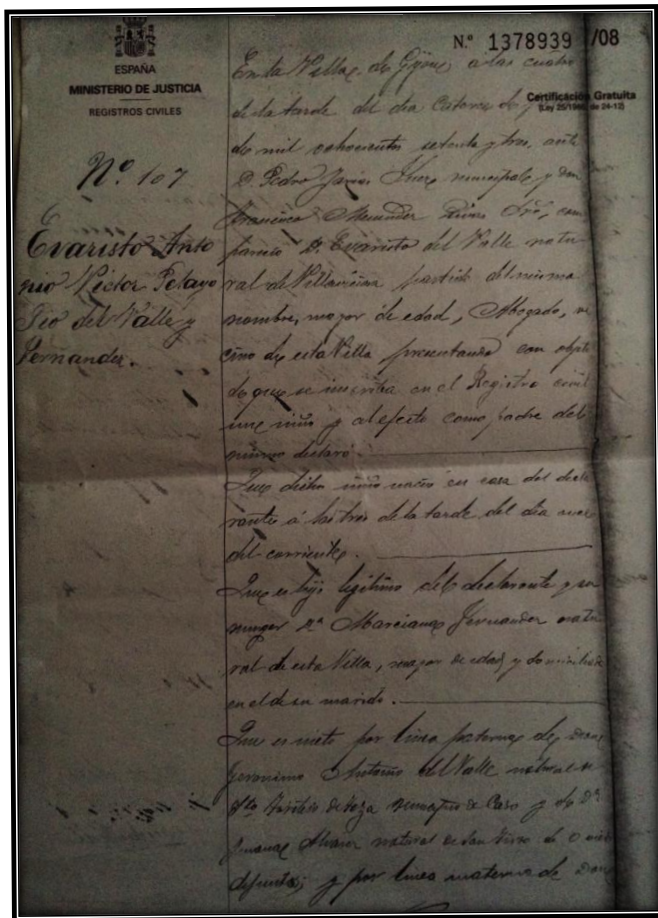 ESPAÑA
MINISTERIO DE JUSTICIA
REGISTROS CIVILES
Nº 107
Evaristo Anto
nio Victor Pelayo
Pio del Valle y
Fernandez.
N.º 1378939 /08
Certificación Gratuita
(Ley 25/1986, de 24-12)
En la Villa de Gijon, a las cuatro
de la tarde del dia catorce de
de mil ochocientos setenta y tres, ante
D. Pedro Juez municipal y don
Francisco Menendez Srio, com
parecio D. Evaristo del Valle natu
ral de Villaviciosa partido del mismo
nombre, mayor de edad, Abogado, ve
cino de esta Villa presentando con objeto
de que se inscriba en el Registro civil
un niño y al efecto como padre del
mismo declaró.
Que dicho niño nació en casa del decla
rante á las tres de la tarde del dia once
del corriente.
Que es hijo legitimo del declarante y su
muger Dª Marciana Fernandez natu
ral de esta Villa, mayor de edad y domiciliada
en el de su marido.
Que es nieto por linea paterna de Don
Geronimo Antonio del Valle natural de
municipio de Caso y de Dª
Alvarez natural de San
defuntos; y por linea materna de Don